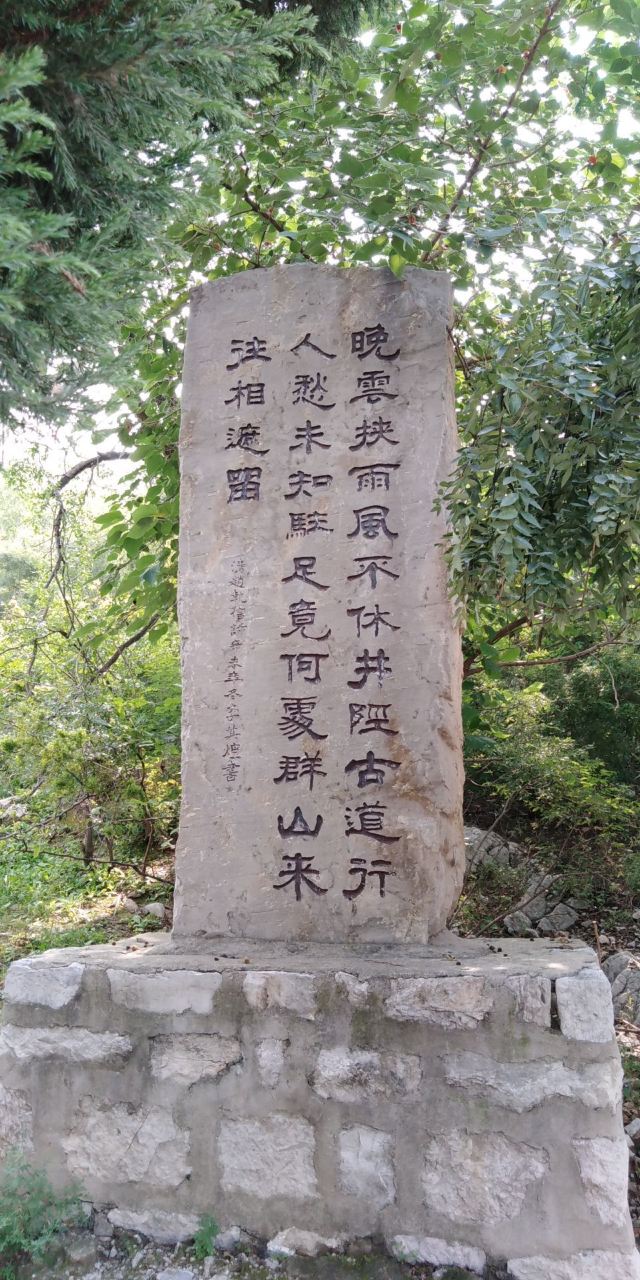 晚雲挟雨風不休井陘古道行
人愁未知駐足竟何處群山来
往相遮留
清趙執信詩辛未年冬